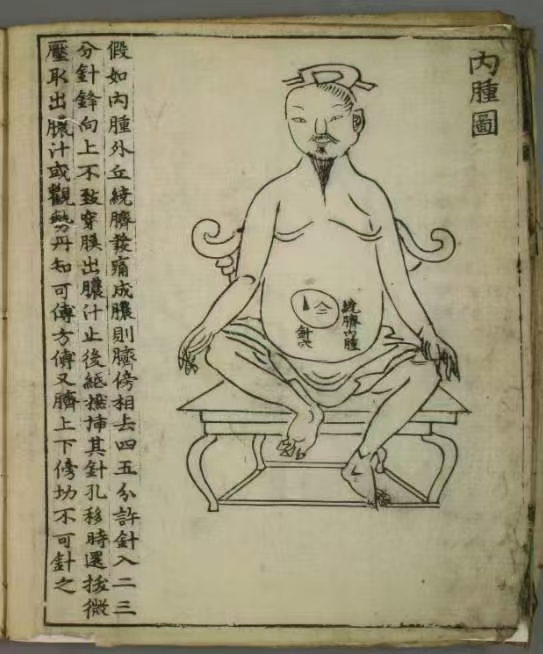 內腫圖
繞臍內腫
針穴
假如內腫外丘繞臍發痛成膿則臍傍相去四五分許針入二三
分針鋒向上不致穿膜出膿汁止後紙撚揷其針孔移時還拔微
壓取出膿汁或觀勢丹知可傅方傅又臍上下傍切不可針之